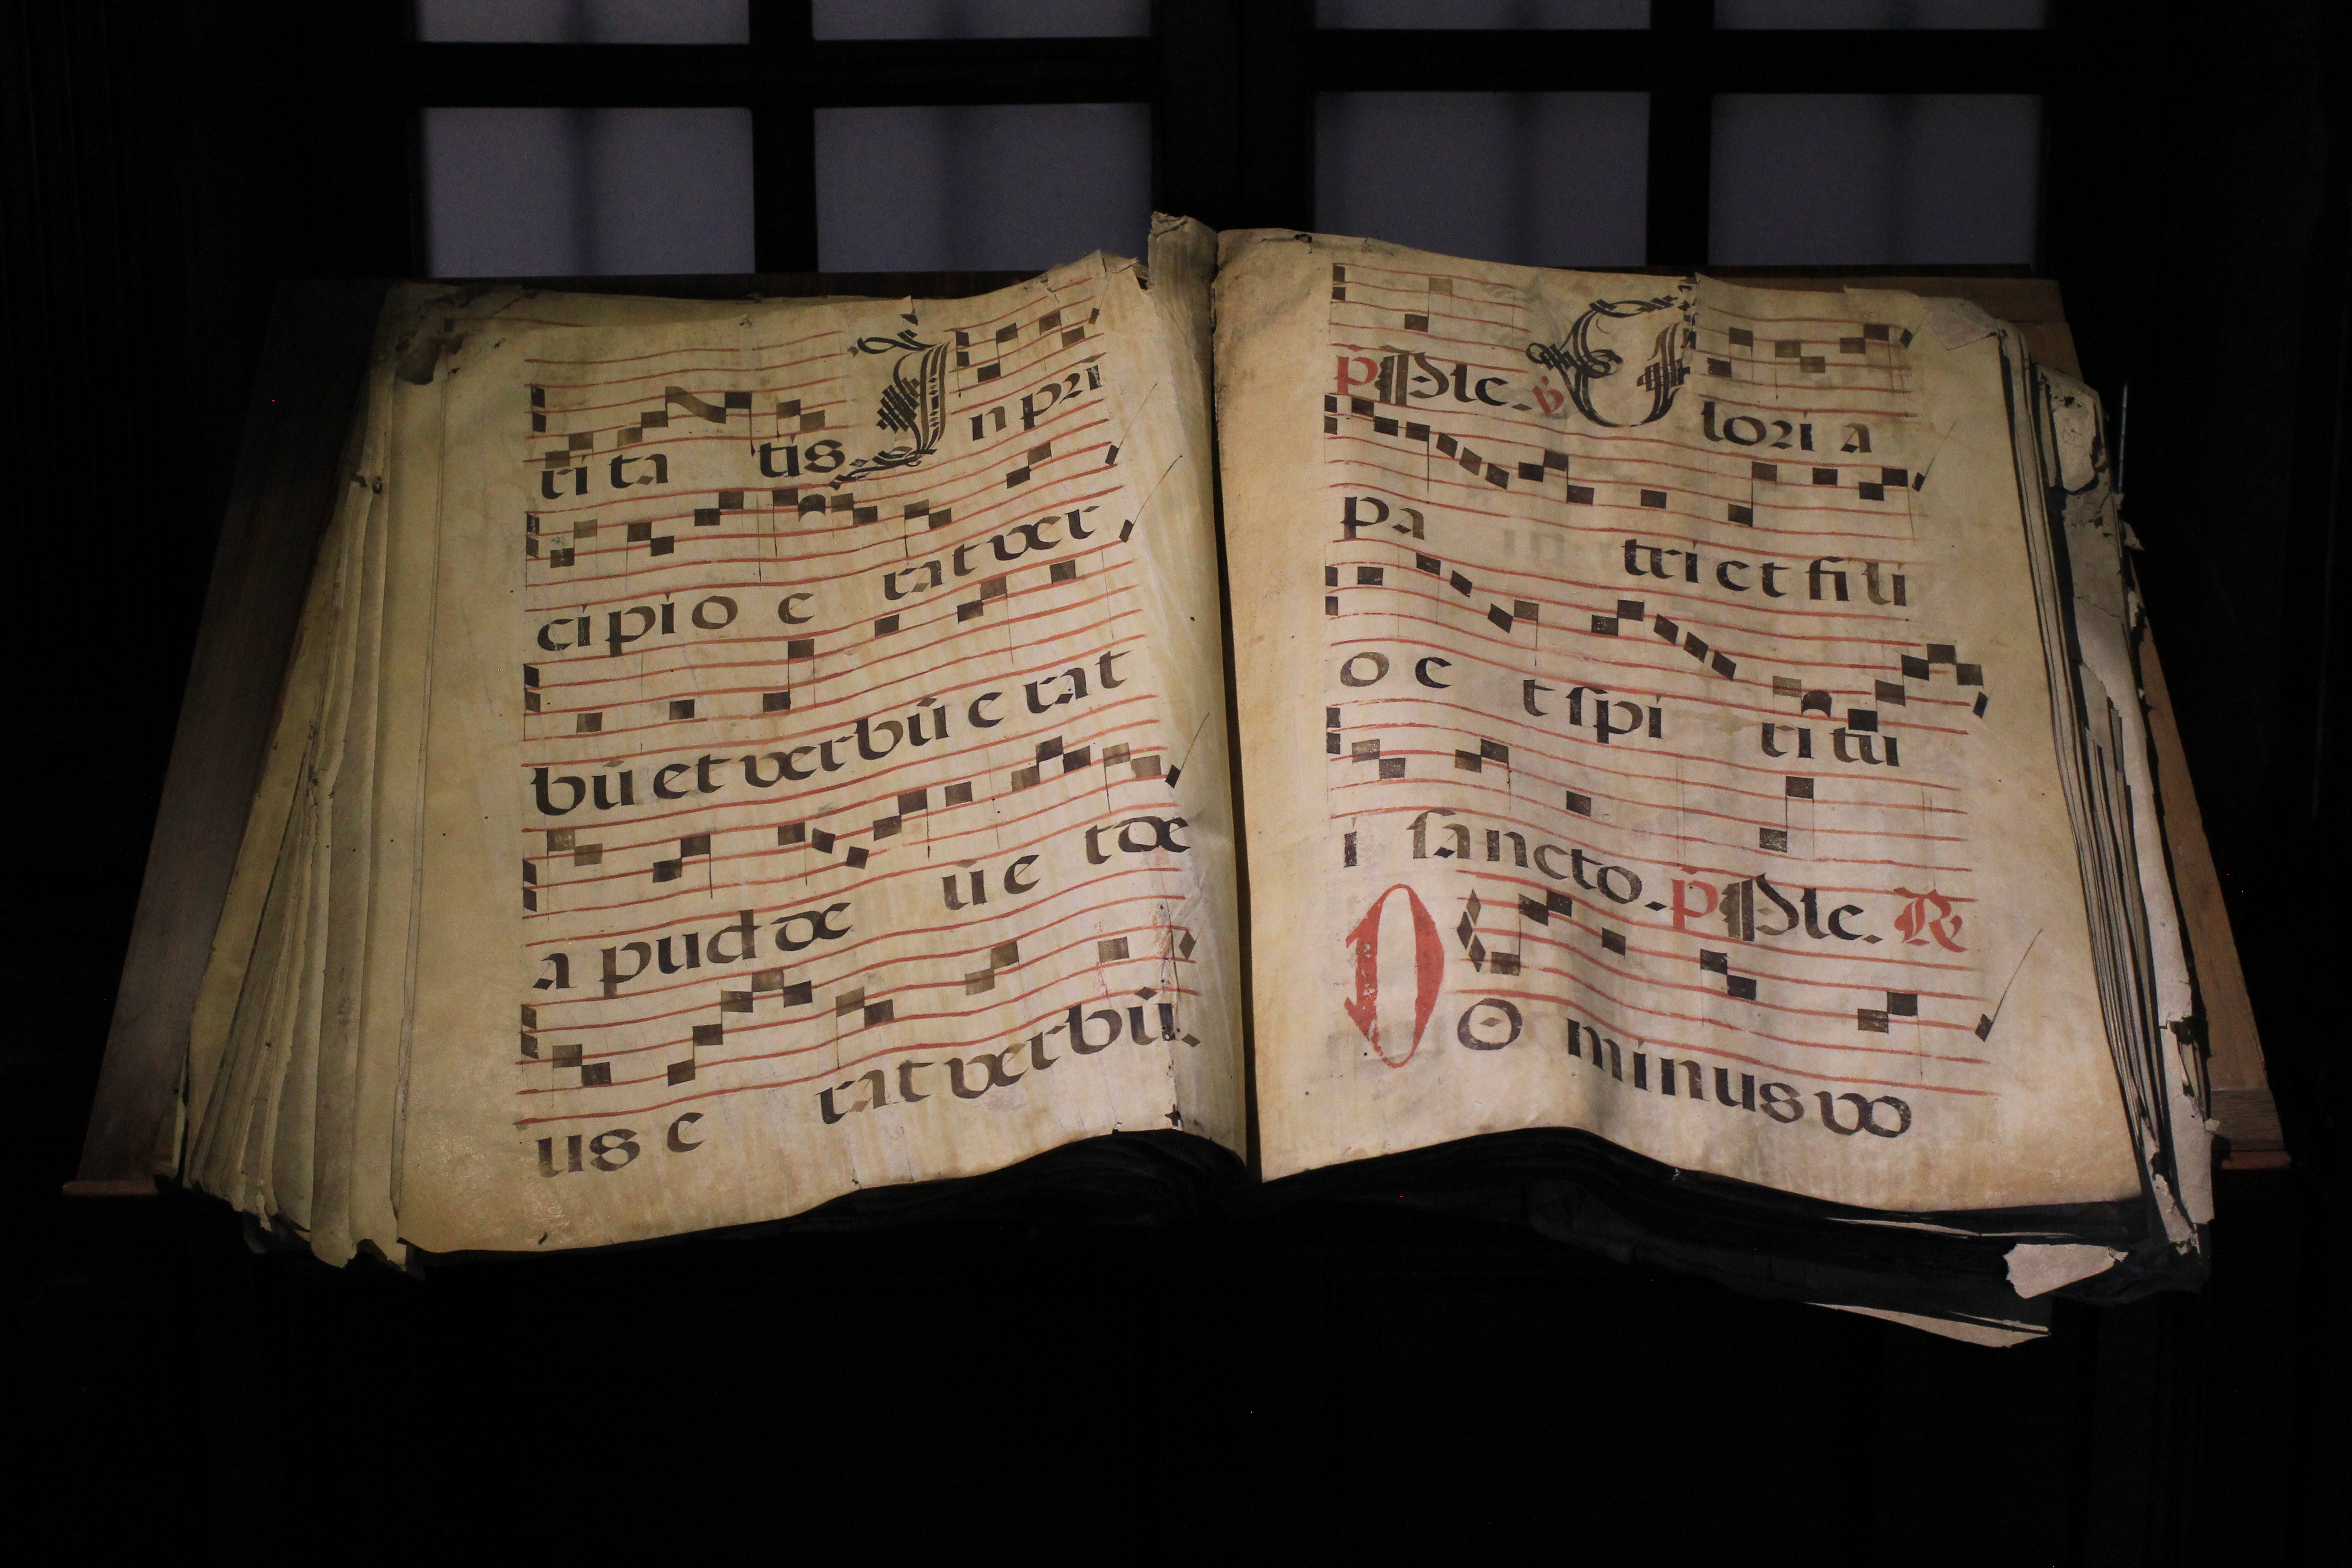 ri ta tis. In pri
ci pi o e rat ver
bū et verbū e rat
a pud de ū e t de
us e rat verbū.
p̄ Ple. ℣ Glori a
pa tri et fi li
o e t spi ri tu
i sancto. p̄ Ple. R
DO minus vo